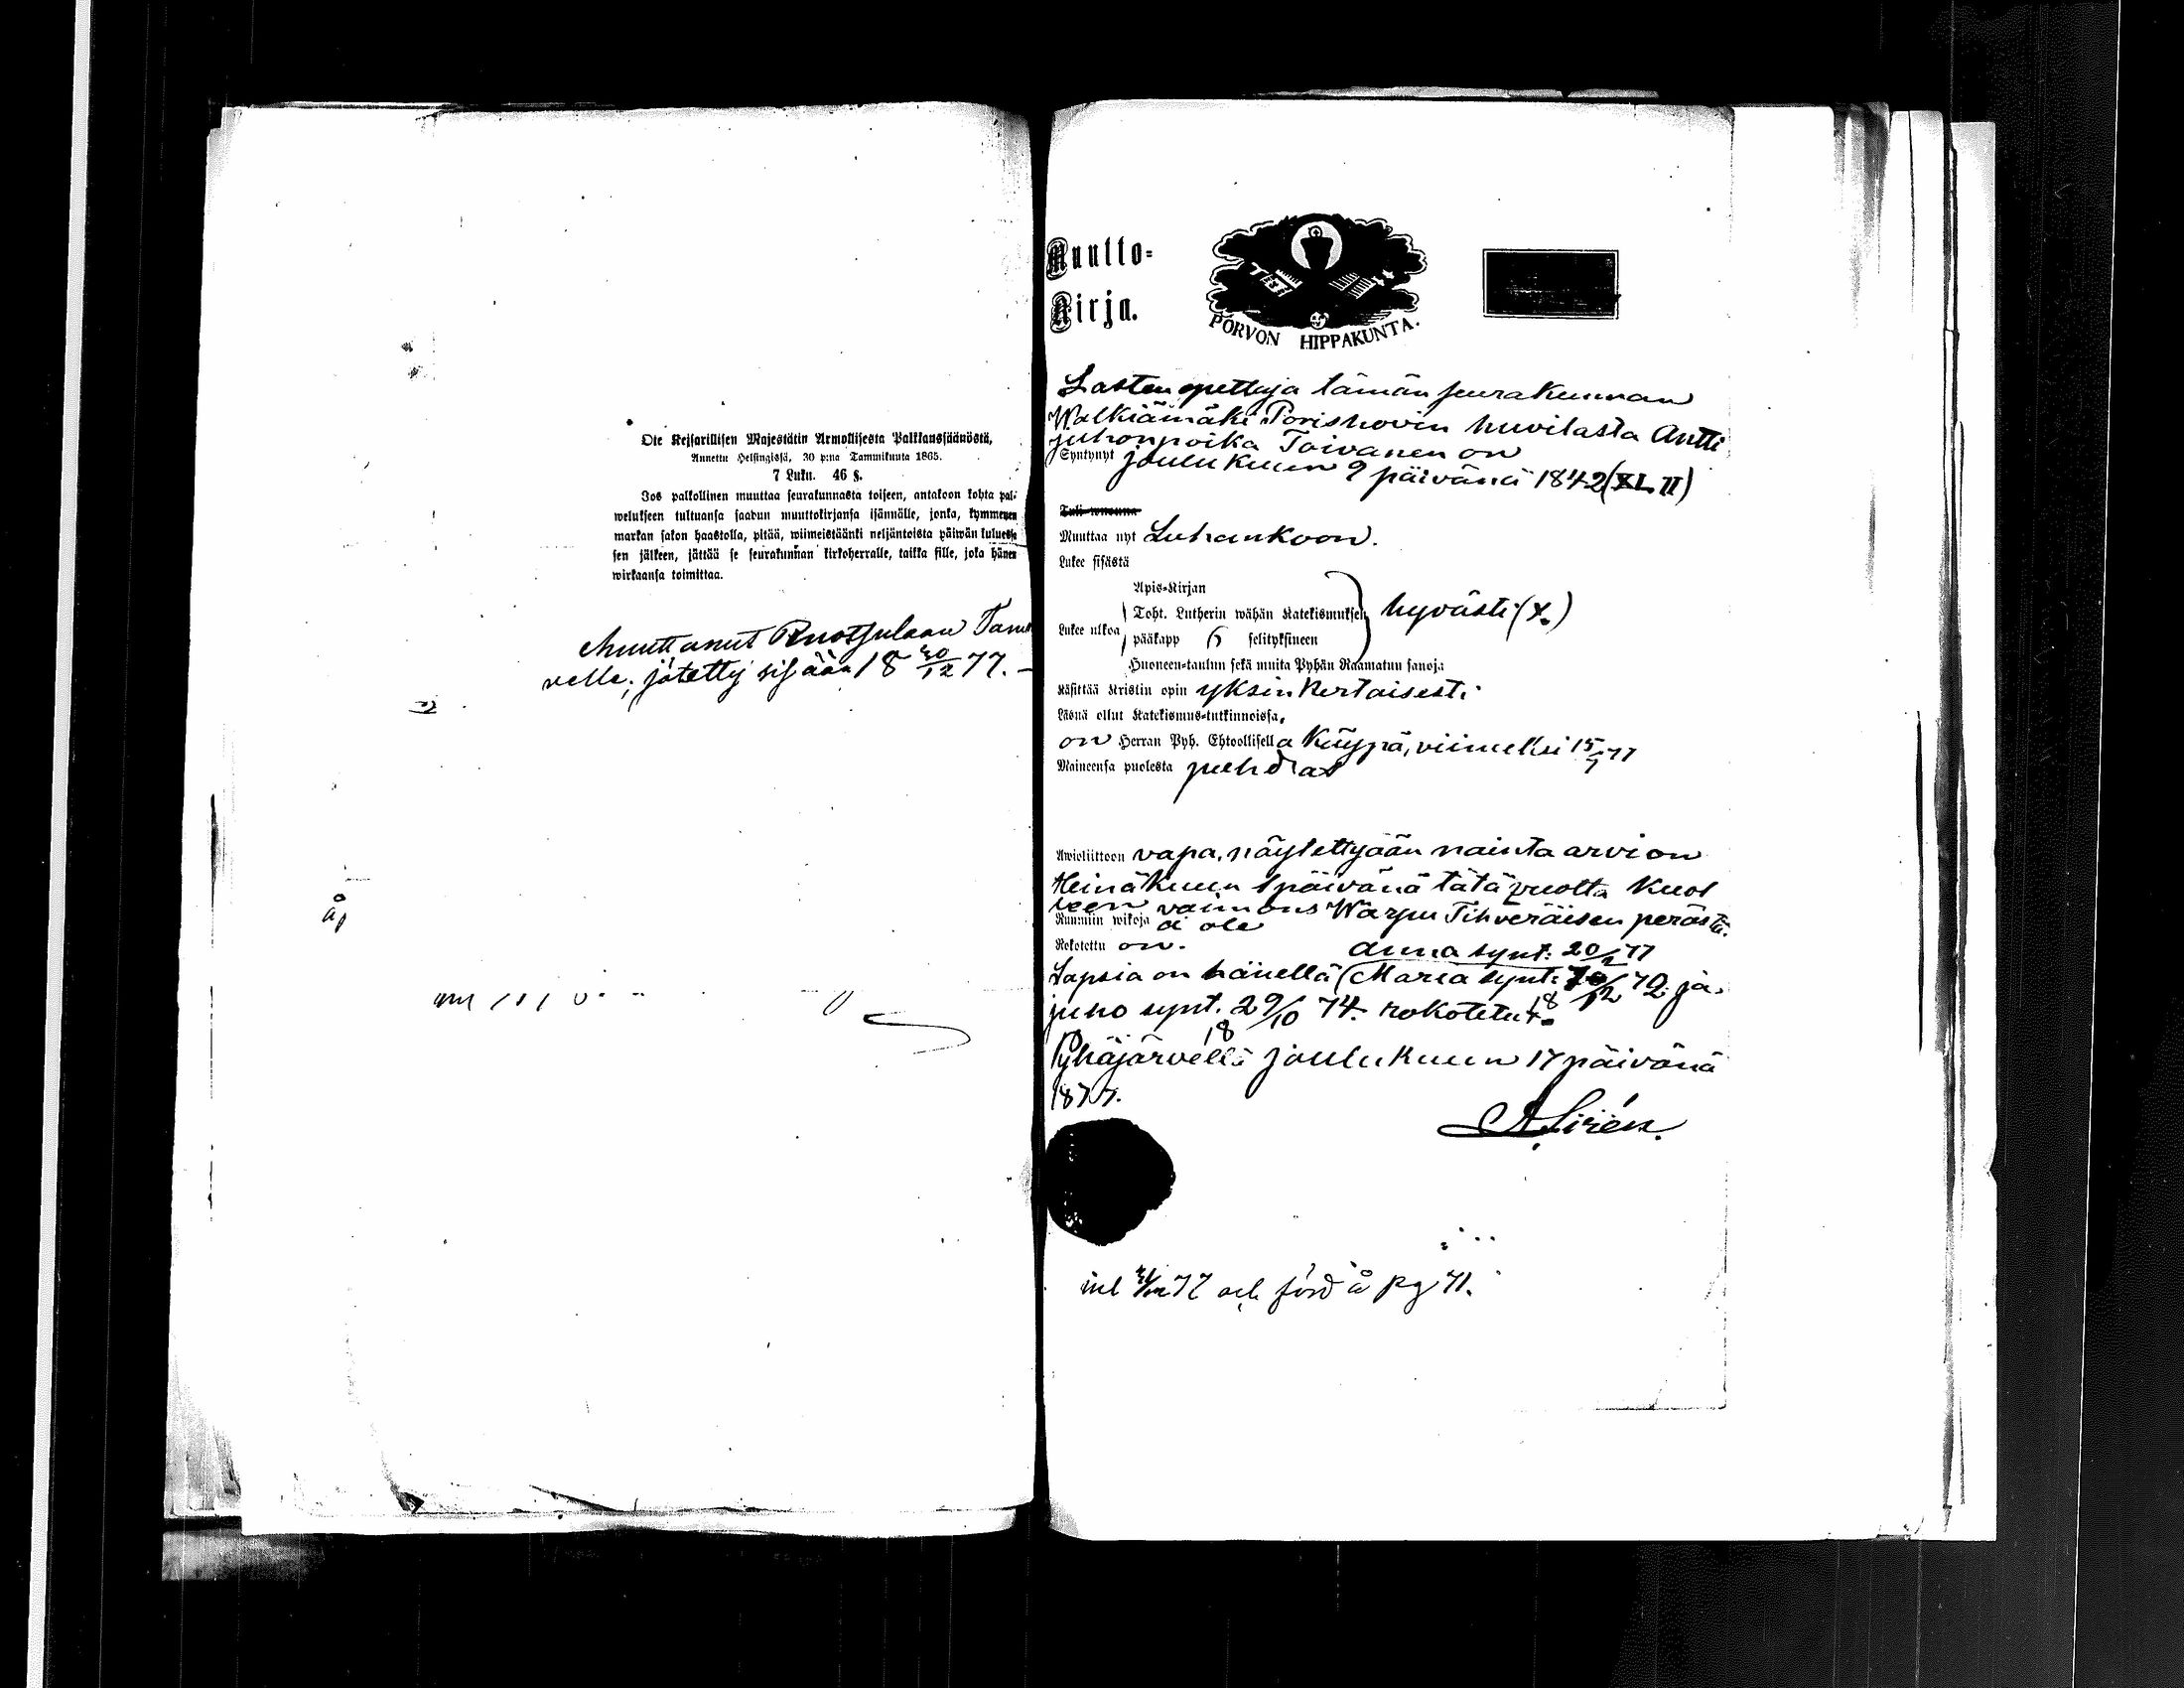 Ote Keisarillisen Majestätin Armollisesta Palkkaussäännöstä,
Annettu Helsingissä, 30 p:nä Tammikuuta 1865.
7 Luku. 46 §.
Jos palkollinen muuttaa seurakunnasta toiseen, antakoon kohta pal-
welukseen tultuansa saadun muuttokirjansa isännälle, jonka, kymmenen
markan sakon haastolla, pitää, wiimeistäänki neljäntoista päiwän kuluessa
sen jälkeen, jättää se seurakunnan kirkoherralle, taikka sille, joka hänen
wirkaansa toimittaa.
Muuttanut Ruotsulaan
velle; jätetty sisään 18 30/12 77.
Muutto-
Kirja.
PORVON HIPPAKUNTA.
Lasten opettaja tämän seurakunnan
Walkiämäki Porishovin huvilasta Antti
Juhonpoika Toivanen on
Syntynyt joulukuun 9 päivänä 1842 (XLII)
Tuli wuonna
Muuttaa nyt Luhankoon.
Lukee sisästä
Apis-Kirjan
Toht. Lutherin wähän Katekismuksen hyvästi (x.)
Lukee ulkoa
pääkapp 5 selityksineen
Huoneen-taulun sekä muita Pyhän Raamatun sanoja
Käsittää Kristin opin yksinkertaisesti
Läsnä ollut Katekismus-tutkinnoissa,
on Herran Pyh. Ehtoollisella käypä, viimeksi 15/7 77
Maineensa puolesta puhdas
Awioliittoon vapa, näytettyään nainta arvion
Heinäkuun 1 päivänä tätä vuotta kuol
leen vaimons Warpu Tihveräisen perästä.
Ruumiin wikoja ei ole
Rokotettu on.
Anna synt: 20/2 77
Lapsia on hänellä (Maria synt: 18 /12 72 ja
Juho synt. 18 29/10 74. rokotetut.
Pyhäjärvellä joulukuun 17 päivänä
1877.
A. Sirén.
inl 31/12 77 och förd å pg 71.